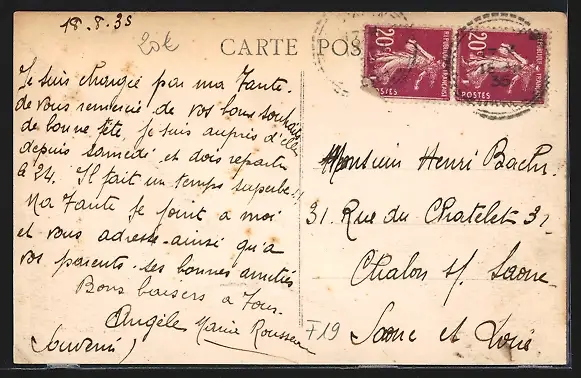 18.8.35
20k
CARTE POS
20c
REPUBLIQUE FRANÇAISE
POSTES
20c
REPUBLIQUE FRANÇAISE
POSTES
35
Je suis chargée par ma Tante
de vous remercier de vos bons souhaits
de bonne fête, je suis auprès d'elle
depuis samedi et dois repartir
le 24. Il fait un temps superbe!!
Ma Tante se joint à moi
et vous adresse ainsi qu'à
vos parents ses bonnes amitiés
Bons baisers à Tous
Angèle Marie Rousseau
Souvenir
Monsieur Henri
31. Rue du Chatelet 31
Chalon s/ Saone
F19
Saone et Loire